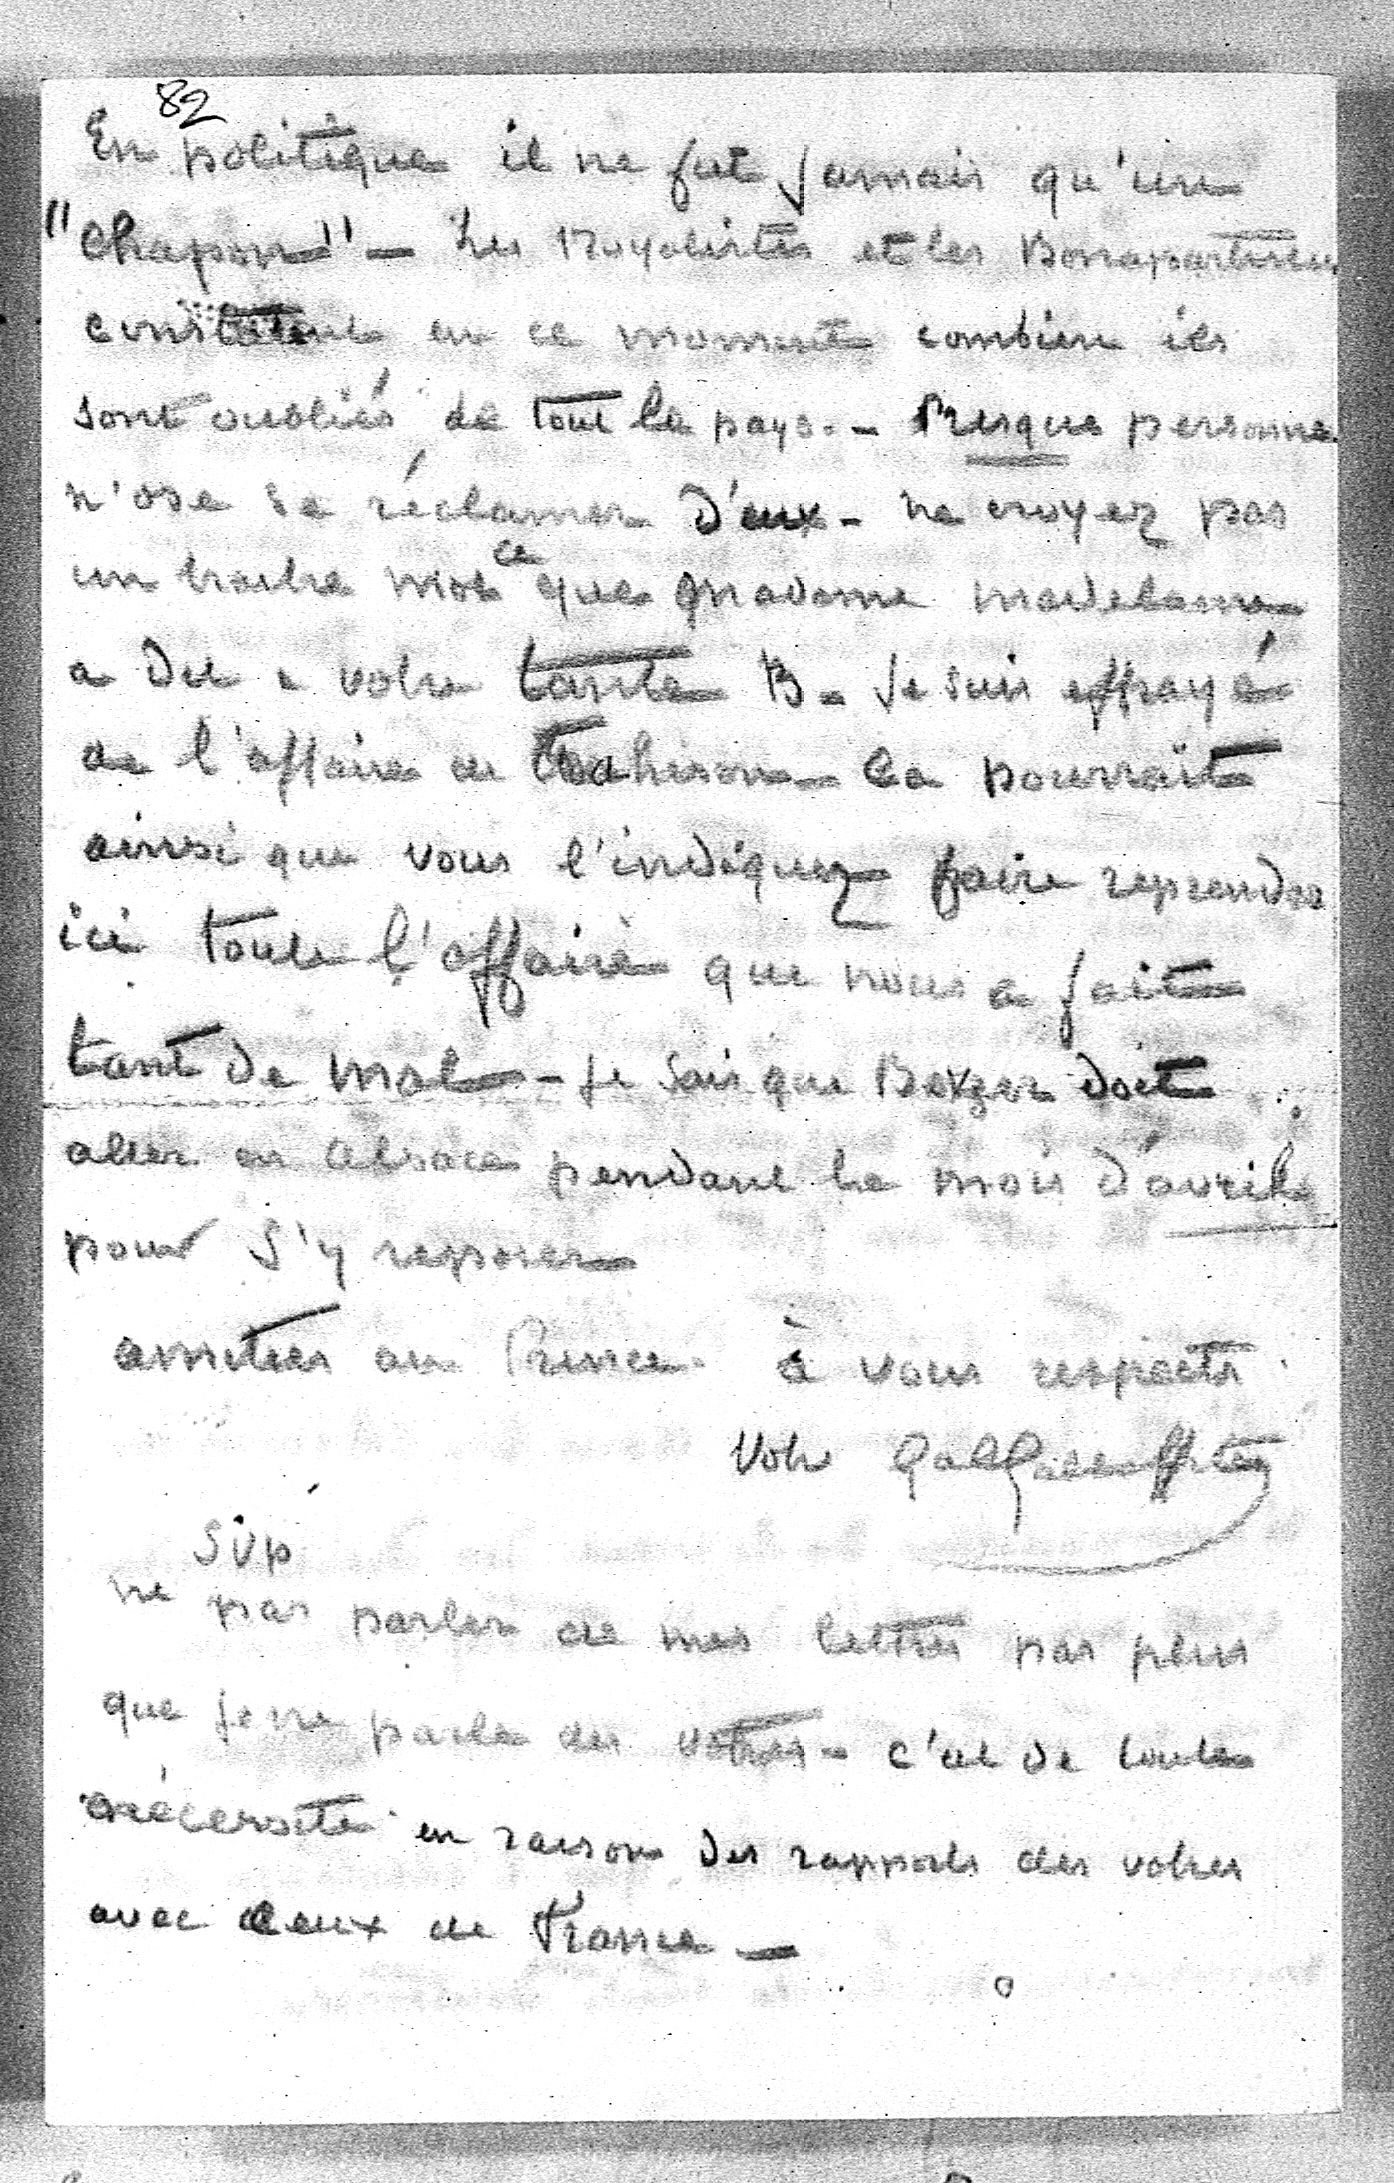 82
En politique il ne fut jamais qu'un
"Chapon" - Les Royalistes et les Bonapartistes
constatent en ce moment combien ils
sont oubliés de tout le pays. - Presque personne
n'ose se réclamer d'eux - ne croyez pas
un traitre mot ce que Madame
a dit à votre tante B. Je suis effrayé
de l'affaire de trahison - Ca pourrait
ainsi que vous l'indiquez faire reprendre
ici toute l'affaire que nous a fait
tant de mal - Je sais que doit
aller en Alsace pendant le mois d'avril
pour s'y reposer
amitiés au Prince à vous respects
Votre
SVP
ne pas parler de mes lettres pas plus
que je ne parle des votres - c'est de toute
nécessité en raison des rapports des votres
avec ceux de France -